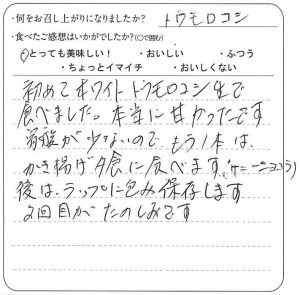 ・何をお召し上がりになりましたか？ トウモロコシ
・食べたご感想はいかがでしたか？（○で囲む）
・とっても美味しい！ ・おいしい ・ふつう
・ちょっとイマイチ ・おいしくない
初めてホワイトトウモロコシ生で
食べました。本当に甘かったです
が少ないので、もう1本は、
かき揚げ夕食に食べます。
後は、ラップに包み保存します
2回目がたのしみです